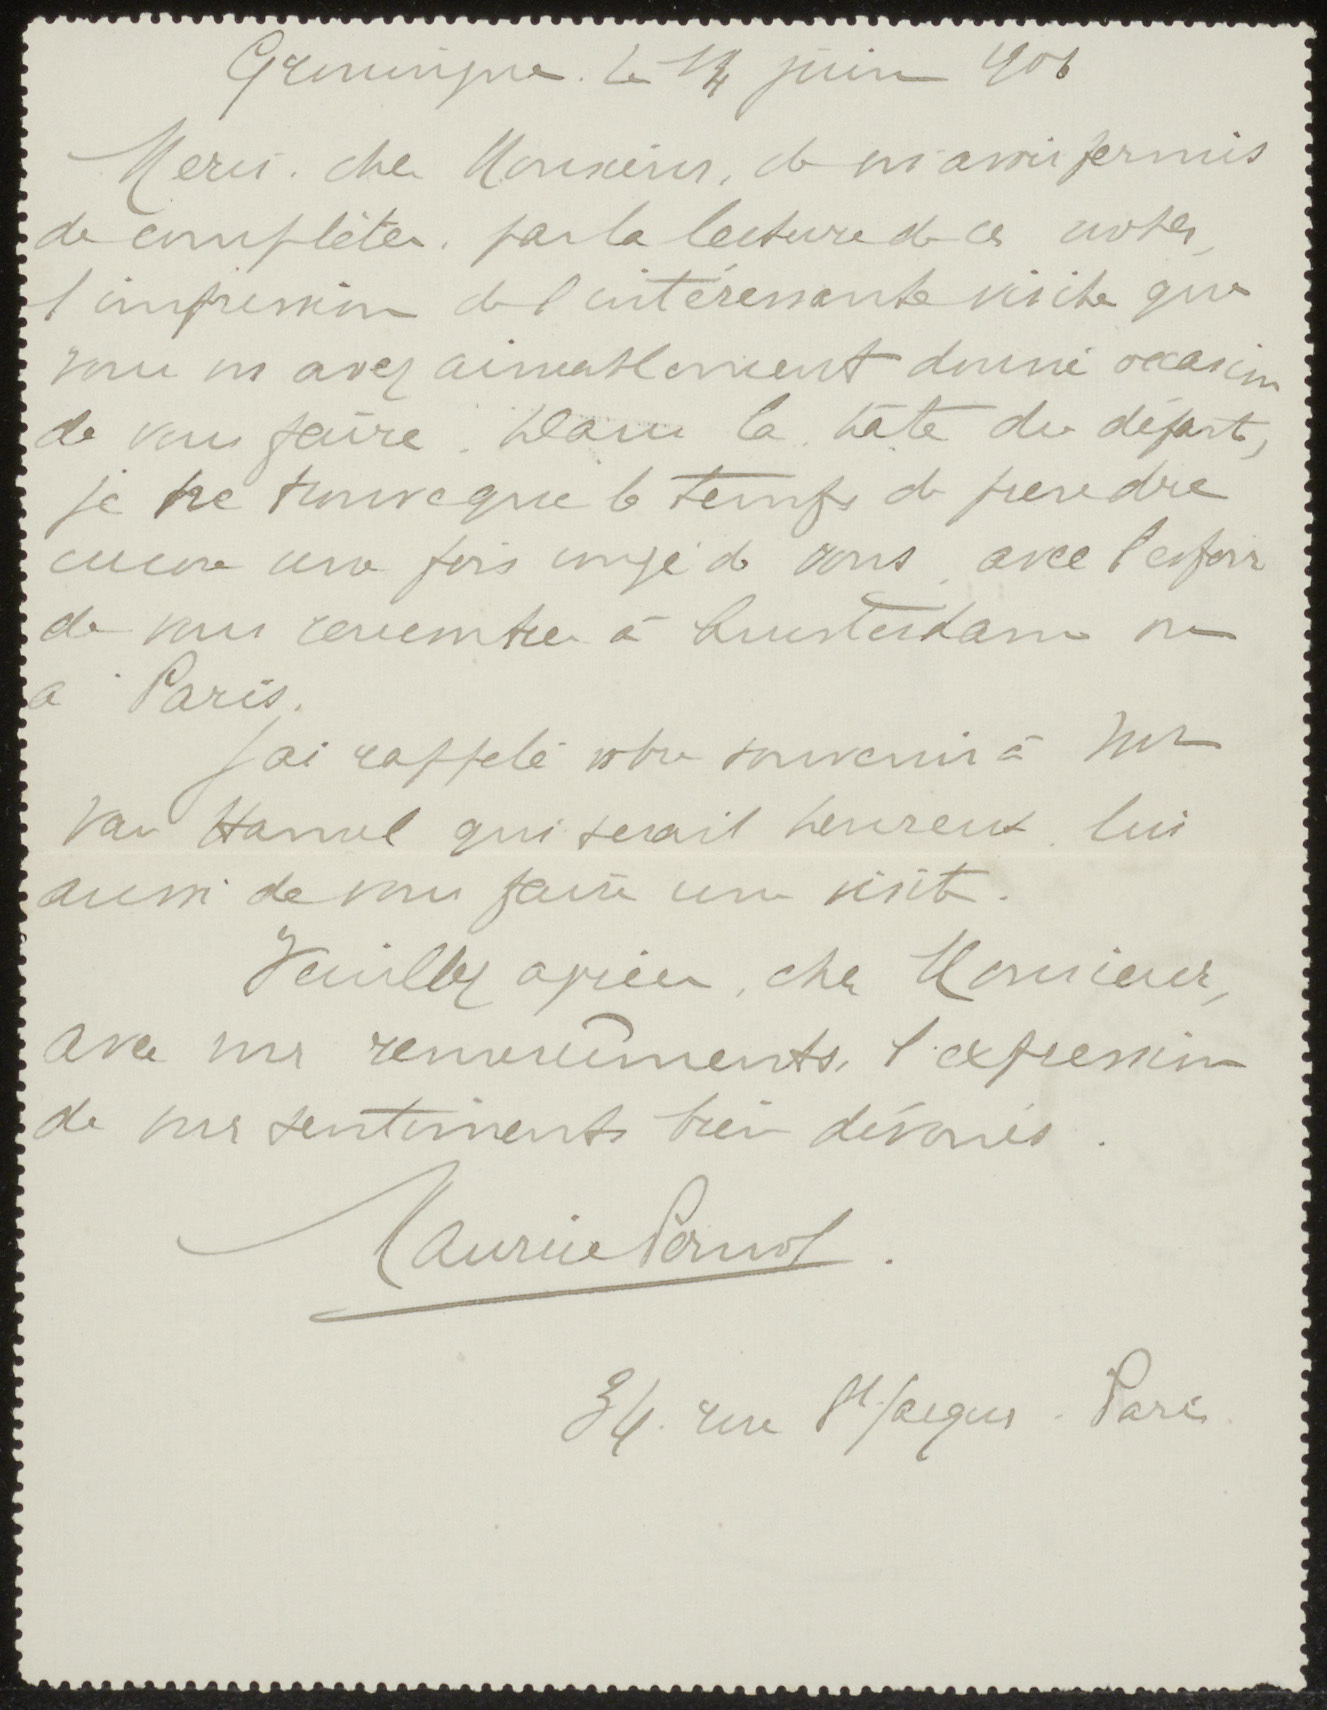 Groningue. le 14 juin 1906
Merci. cher Monsieur, de m'avoir permis
de compléter. par la lecture de ces notes,
l'impression de l'intéressante visite que
vous m'avez aimablement donné occasion
de vous faire. Dans la hâte du départ,
je ne trouve que le temps de prendre
encore une fois congé de vous, avec l'espoir
de vous rencontrer à Amsterdam ou
à Paris.
J'ai rappelé votre souvenir à Mr
Van Hamel qui serait heureux lui
aussi de vous faire une visite.
Veuillez agréer, cher Monsieur,
avec mes remerciements, l'expression
de mes sentiments bien dévoués.
Maurice Pernot.
34. rue St Jacques. Paris.